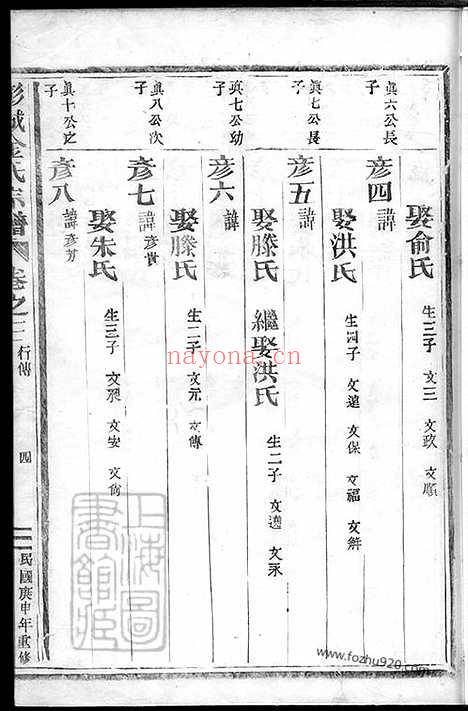 娶俞氏 生三子 文三 文政 文順
眞六公長子 彥四 諱
娶洪氏 生四子 文遠 文保 文福 文鮮
眞七公長子 彥五 諱
娶滕氏 繼娶洪氏 生二子 文邁 文永
眞七公幼子 彥六 諱
娶滕氏 生二子 文元 文傳
眞八公次子 彥七 諱彥貴
娶朱氏 生三子 文昶 文安 文尚
眞十公之子 彥八 諱彥芳
彭城金氏宗譜 卷之 行傳 四 民國庚申年重修
上海圖書館藏
nayona.cn
www.fozhu920.com